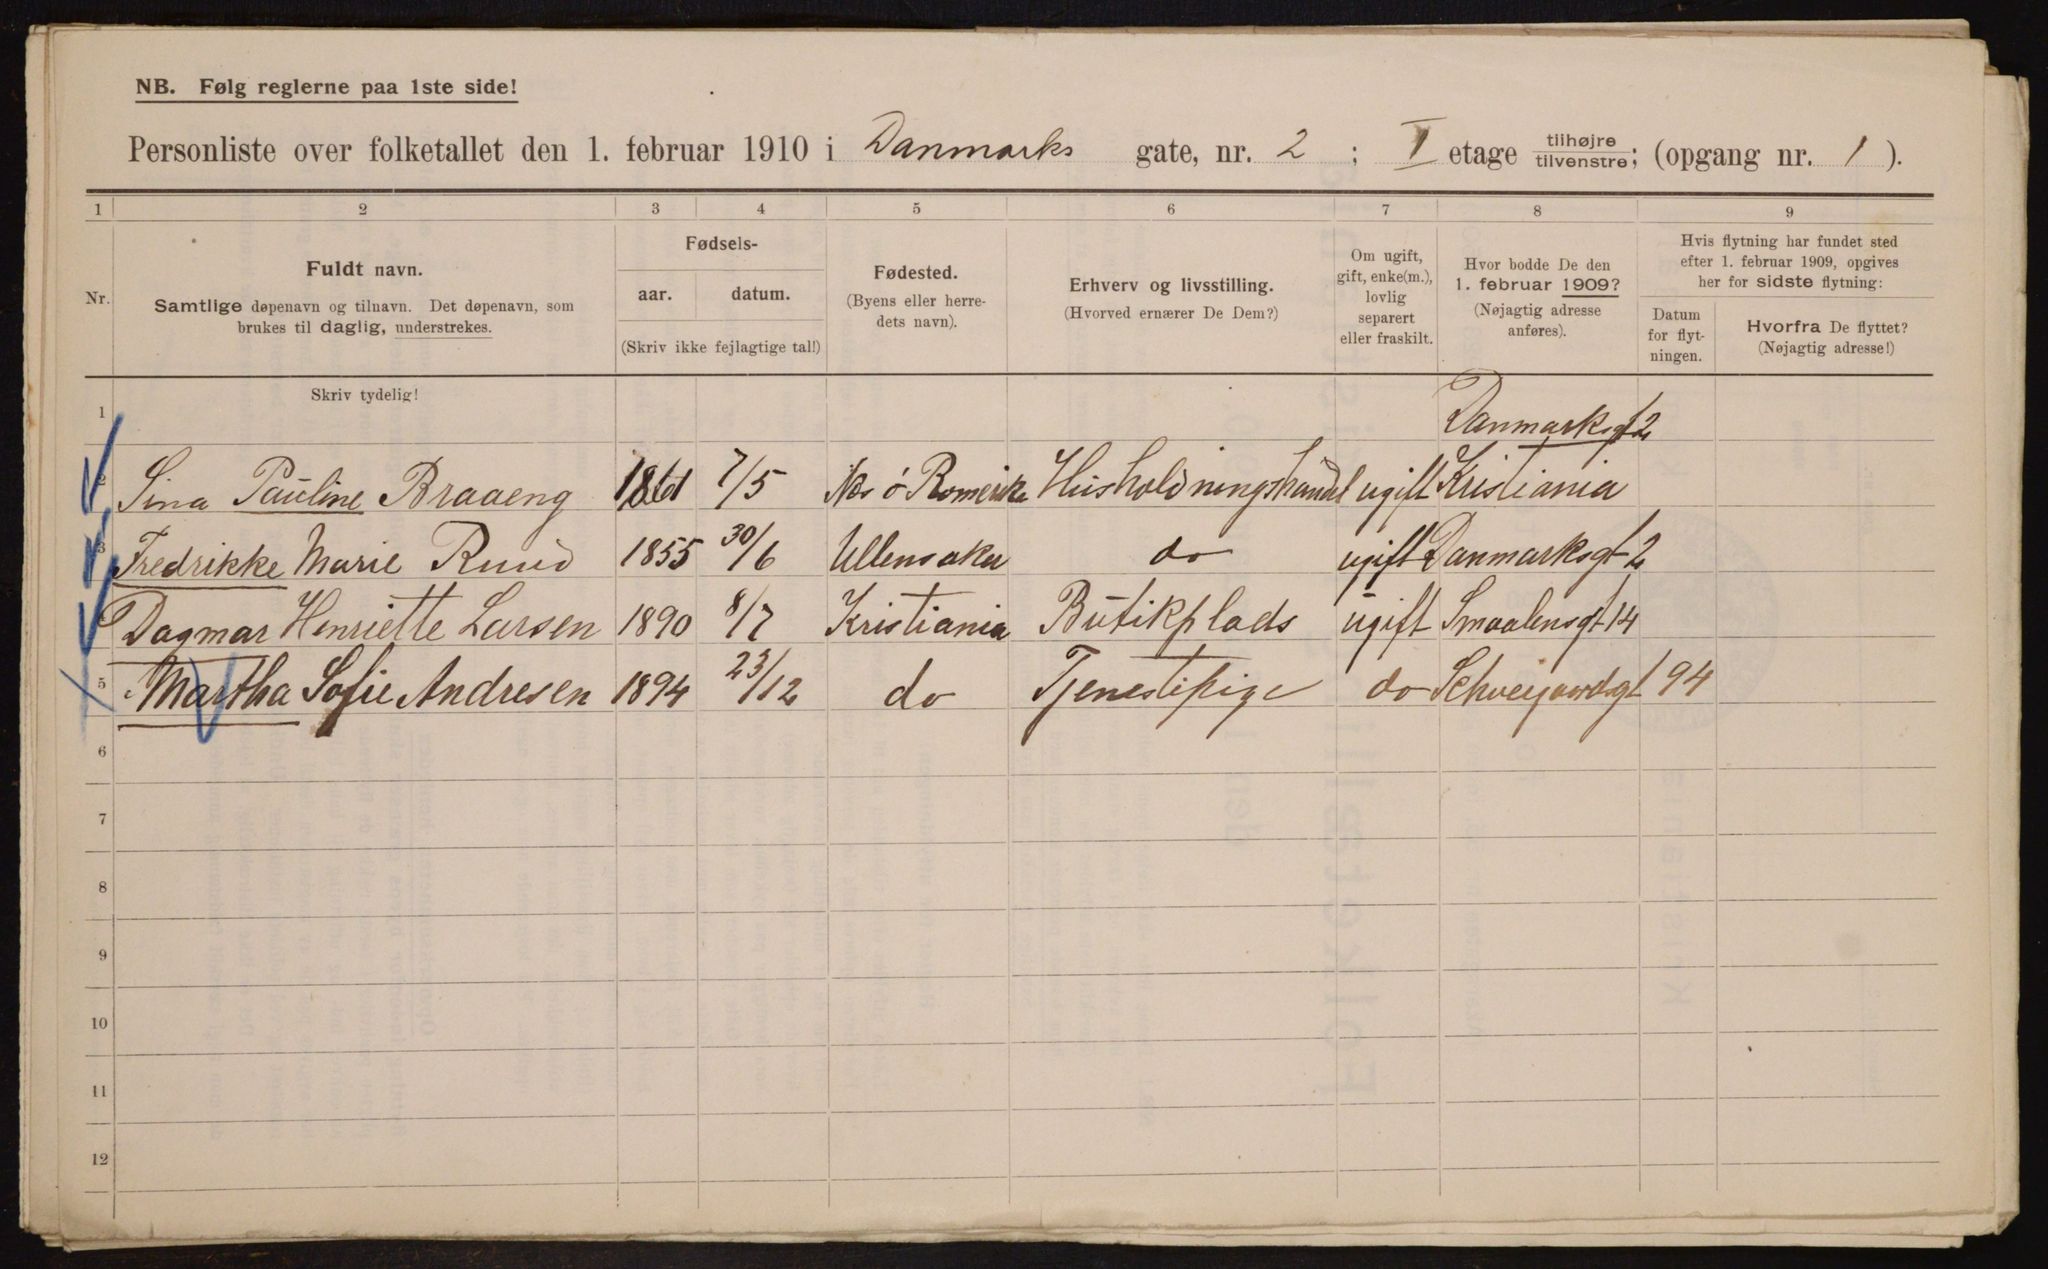 NB. Følg reglerne paa 1ste side!
Personliste over folketallet den 1. februar 1910 i Danmarks gate, nr. 2 ; I etage tilhøjre tilvenstre; (opgang nr. 1 ).
1 2 3 4 5 6 7 8 9
Nr.
Fuldt navn.
Samtlige døpenavn og tilnavn. Det døpenavn, som
brukes til daglig, understrekes.
Fødsels-
aar. datum.
(Skriv ikke fejlagtige tal!)
Fødested.
(Byens eller herre-
dets navn).
Erhverv og livsstilling.
(Hvorved ernærer De Dem?)
Om ugift,
gift, enke(m.),
lovlig
separert
eller fraskilt.
Hvor bodde De den
1. februar 1909?
(Nøjagtig adresse
anføres).
Hvis flytning har fundet sted
efter 1. februar 1909, opgives
her for sidste flytning:
Datum
for flyt-
ningen.
Hvorfra De flyttet?
(Nøjagtig adresse!)
Skriv tydelig!
1 Danmarksgt 2
2 Sina Pauline Braaeng 1861 7/5 Nes ö Romerike Husholdningshandel ugift Kristiania
3 Fredrikke Marie Ruud 1855 30/6 Ullensaker do ugift Danmarksgt 2
Dagmar Henriette Larsen 1890 8/7 Kristiania Butikplads ugift Smaalensgt 14
5 Martha Sofie Andresen 1894 23/12 do Tjenestepige do Schveigaardsgt 94
6
7
8
9
10
11
12